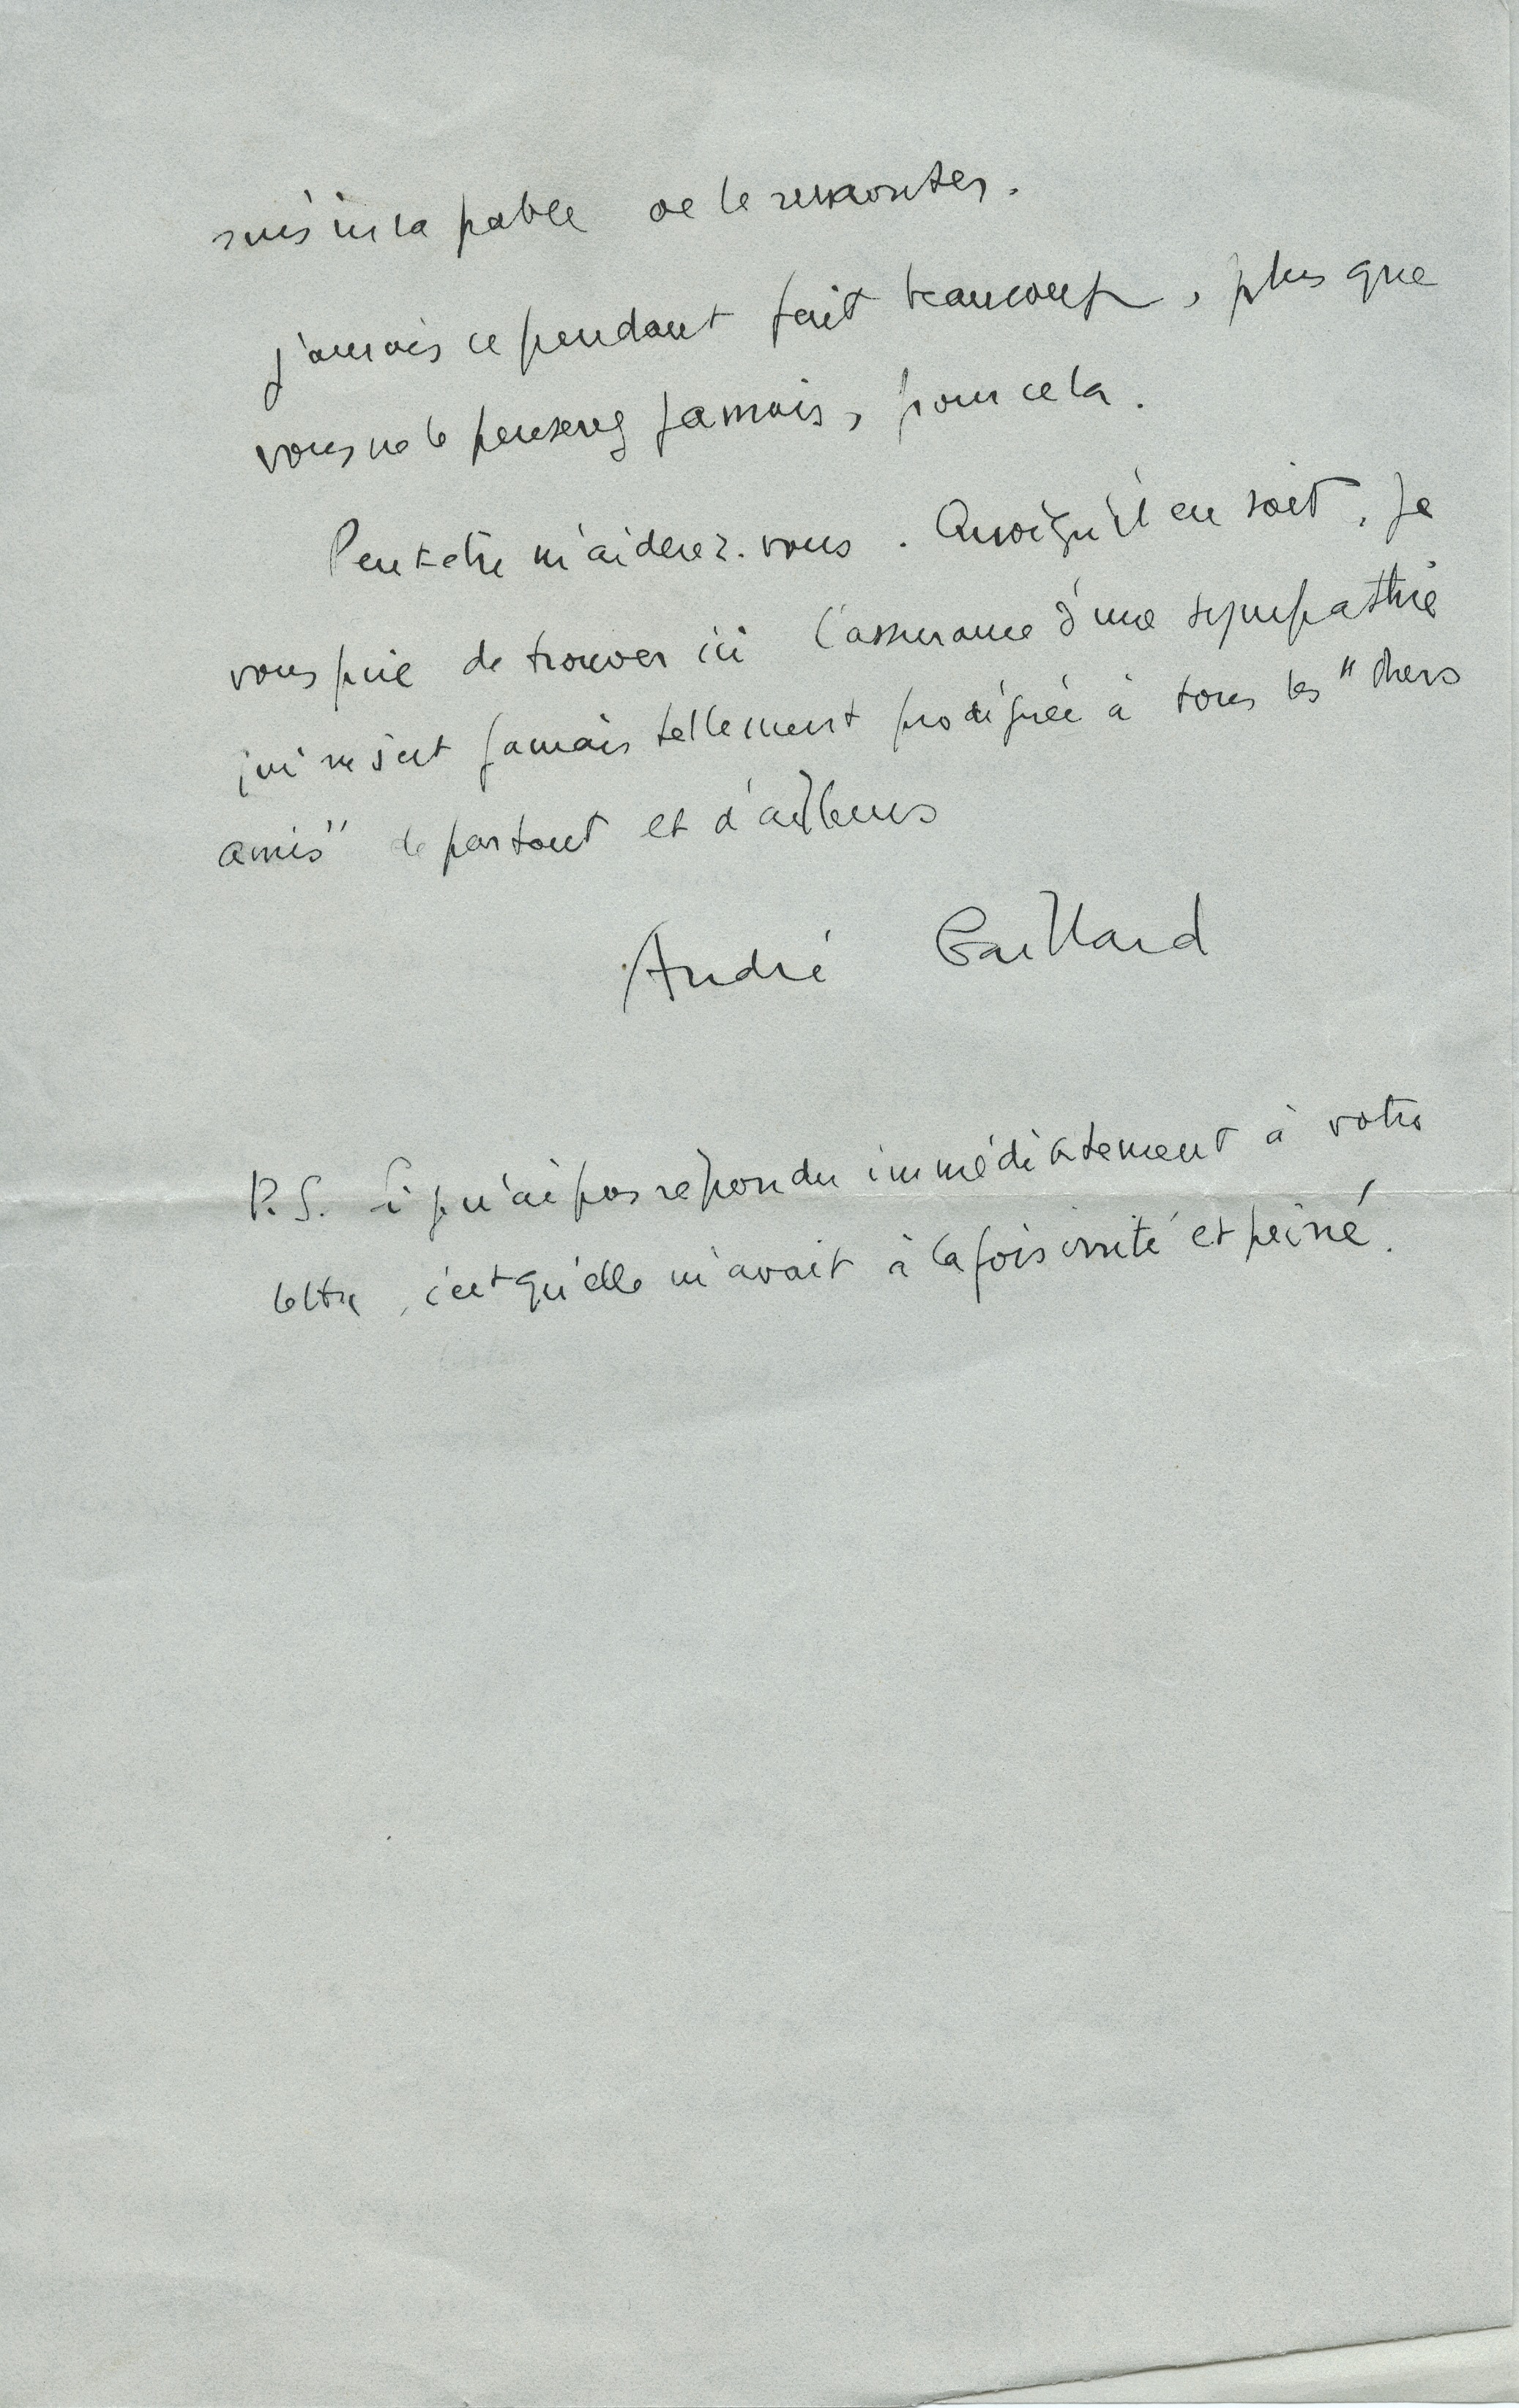 suis incapable de le remonter.
J'aurais cependant fait beaucoup, plus que
vous ne le penserez jamais, pour cela.
Peut-être m'aiderez-vous. Quoiqu'il en soit, je
vous prie de trouver ici l'assurance d'une sympathie
qui ne s'est jamais tellement prodiguée à tous les "chers
amis" de partout et d'ailleurs
André Gaillard
P.S. Si n'ai pas répondu immédiatement à votre
lettre, c'est qu'elle m'avait à la fois irrité et peiné.